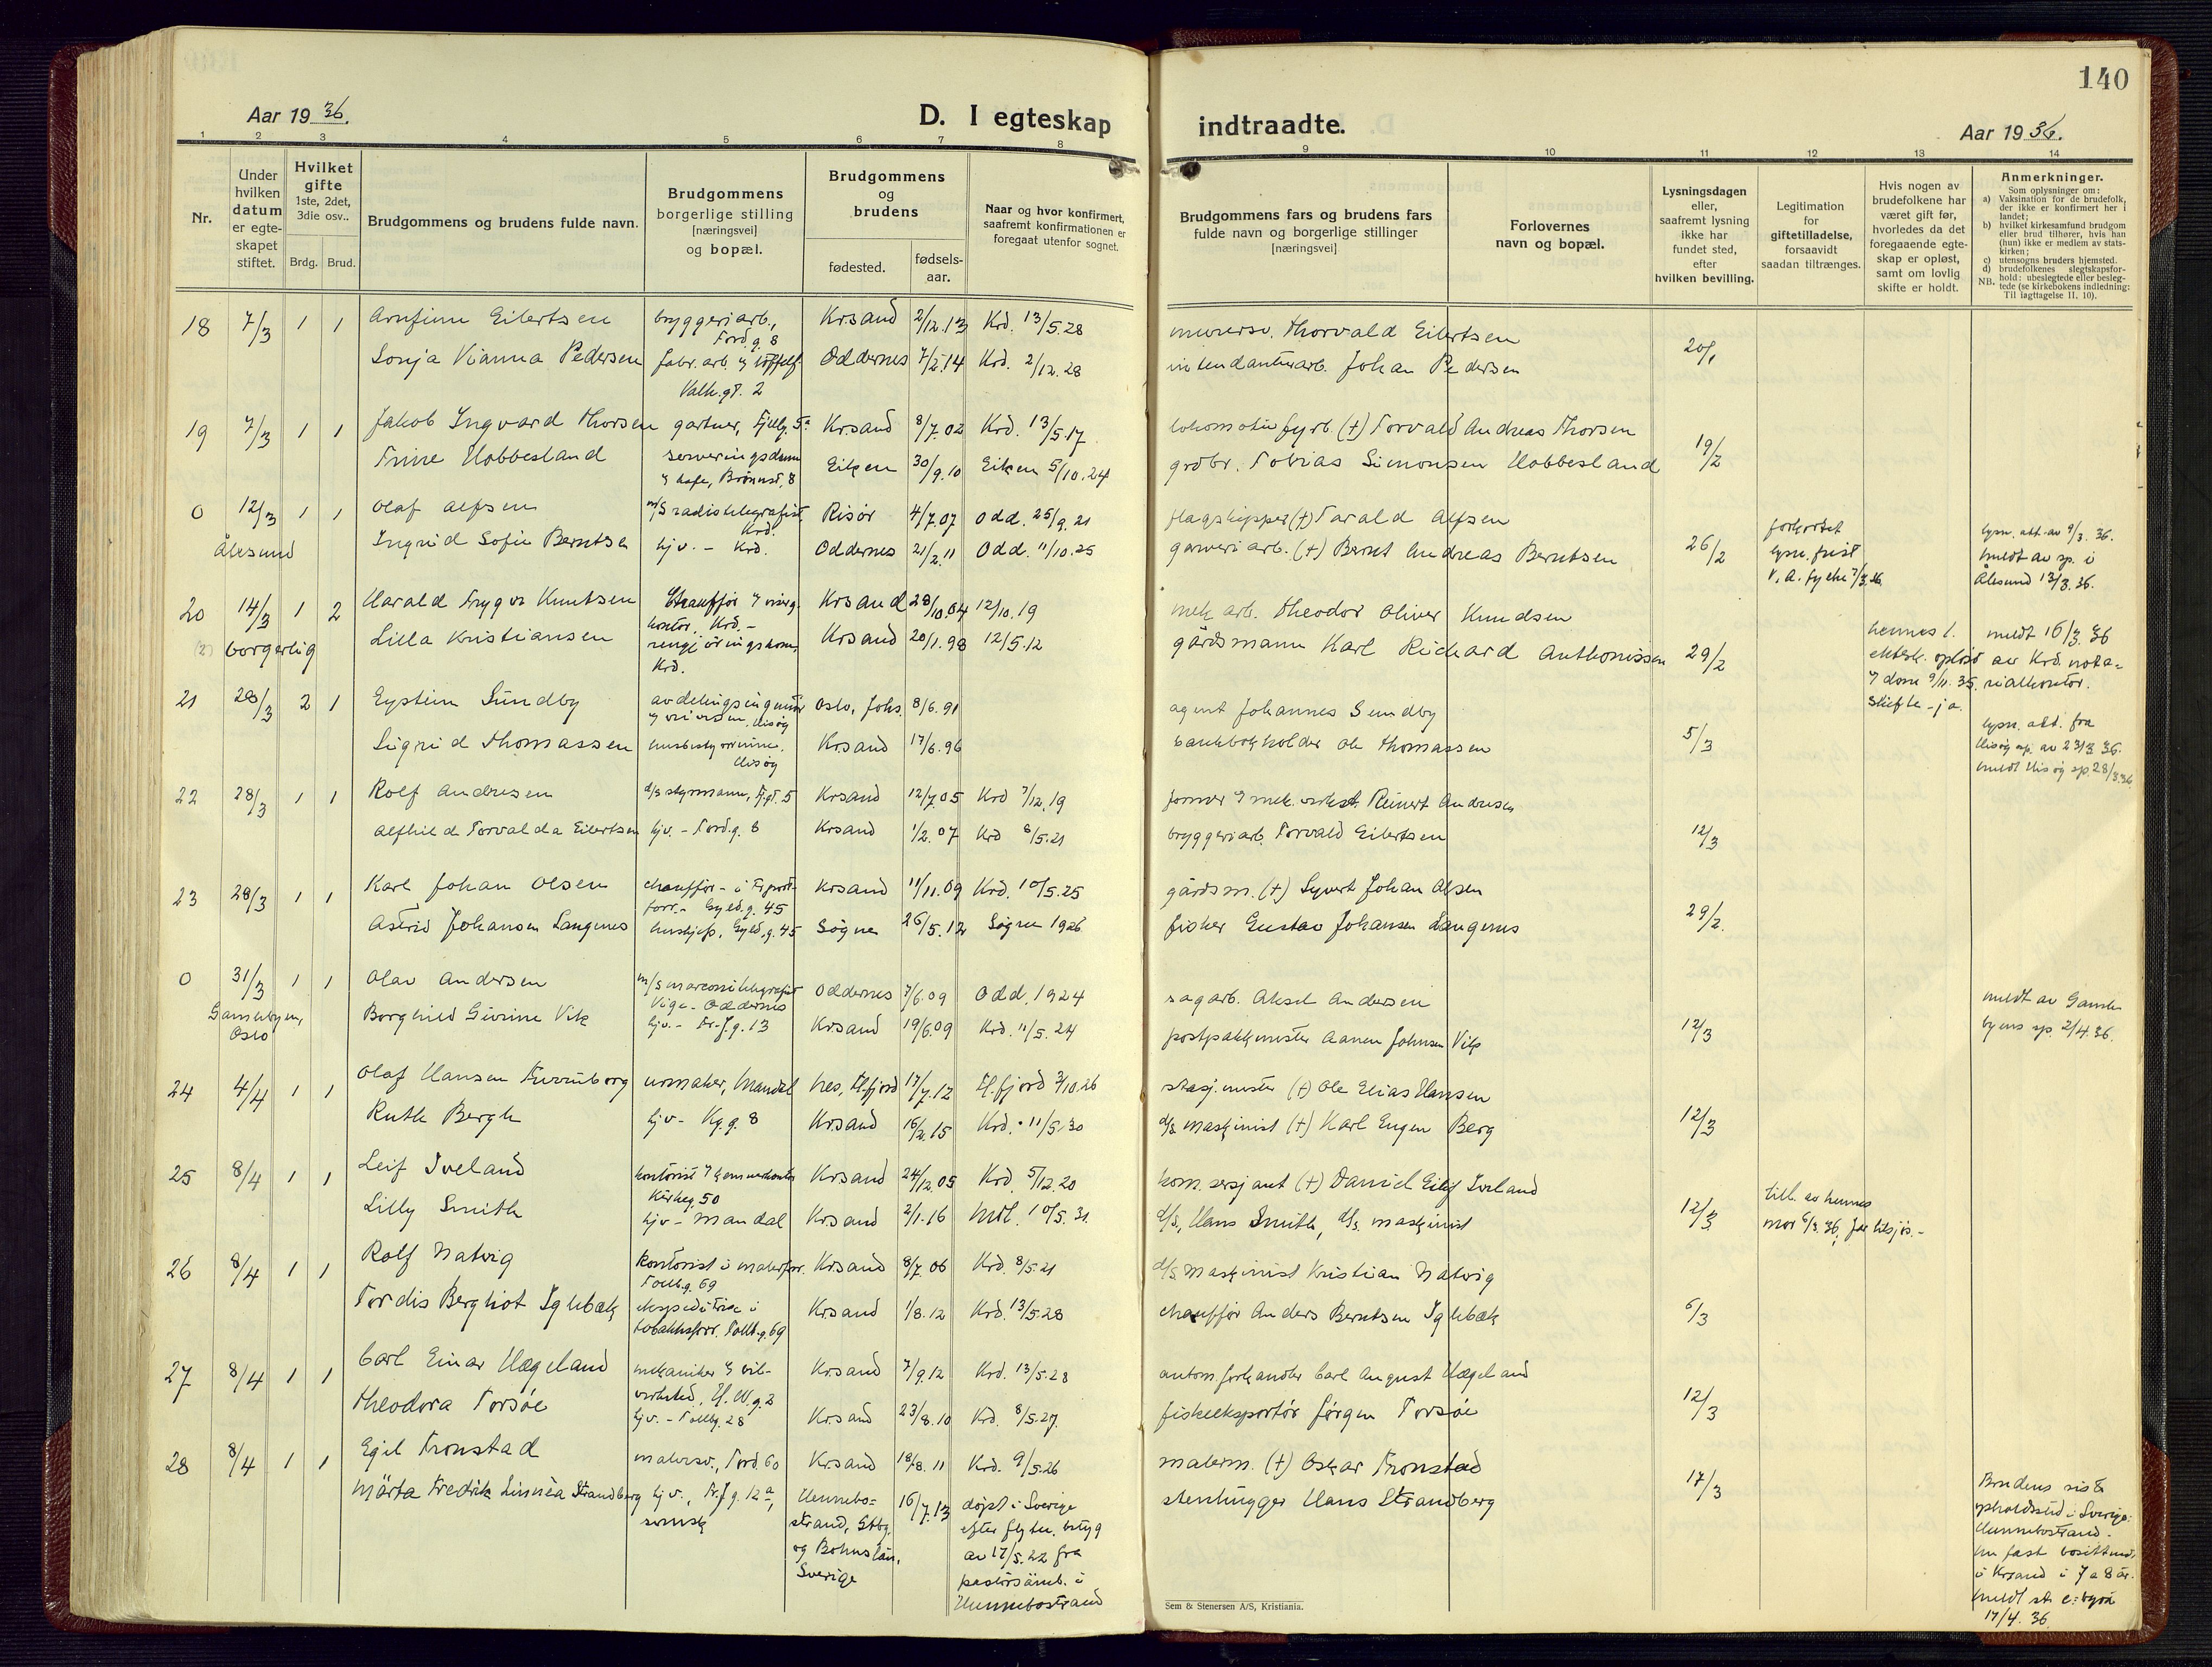 140
Aar 1936.
D. I egteskap indtraadte.
Aar 1936.
1 2 3 4 5 6 7 8 9 10 11 12 13 14
Nr.
Under hvilken datum er egteskapet stiftet.
Hvilket gifte 1ste, 2det, 3die osv..
Brdg. Brud.
Brudgommens og brudens fulde navn.
Brudgommens borgerlige stilling [næringsvei] og bopæl.
Brudgommens og brudens
fødested.
fødselsaar.
Naar og hvor konfirmert, saafremt konfirmationen er foregaat utenfor sognet.
Brudgommens fars og brudens fars fulde navn og borgerlige stillinger [næringsvei]
Forlovernes navn og bopæl.
Lysningsdagen eller, saafremt lysning ikke har fundet sted, efter hvilken bevilling.
Legitimation for giftetilladelse, forsaavidt saadan tiltrænges.
Hvis nogen av brudefolkene har været gift før, hvorledes da det foregaaende egteskap er opløst, samt om lovlig skifte er holdt.
Anmerkninger.
Som oplysninger om:
a) Vaksination for de brudefolk, der ikke er konfirmert her i landet;
b) hvilket kirkesamfund brudgom eller brud tilhører, hvis han (hun) ikke er medlem av statskirken;
c) utensogns bruders hjemsted.
d) brudefolkenes slegtskapsforhold: ubeslegtede eller beslegtede (se kirkebokens indledning:
NB. Til Iagttagelse II. 10).
18 7/3 1 1 Arnfinn Eilertsen bryggeriarb., Tord.g. 8 Krsand 2/12.13 Krd. 13/5.28 murersv. Thorvald Eilertsen
Sonja Vianna Pedersen fabr.arb. Valh.gt. 2 Oddernes 7/2.14 Krd. 2/12.28 intendanturarb. Johan Pedersen 20/1
19 7/3 1 1 Jakob Ingvard Thorsen gartner, Fjellg. 5a Krsand 8/7.02 Krd. 13/5.17 lokomotivfyrb. (+) Torvald Andreas Thorsen
Trine Hobbesland serveringsdame Eiken 30/9.10 Eiken 5/10.24 grdbr. Tobias Simonsen Hobbesland 19/2
0 12/3 1 1 Olaf Alfsen m/s radiotelegrafist, Krd. Risør 4/7.07 Odd. 25/9.21 flagskipper (+) Tarald Alfsen
Ålesund Ingrid Sofie Berntsen hjv. - Krd. Oddernes 21/2.11 Odd. 11/10.25 garveriarb. (+) Bernt Andreas Berntsen 26/2 forkortet lysn. frist lysn. att. av 9/3.36. meldt av sp. i Ålesund 13/3.36.
20 14/3 1 2 Harald Trygve Knutsen Krd. - Krsand 28/10.04 12/10.19 mek arb. Theodor Oliver Knudsen
borgerlig Lilla Kristiansen rengjøringskone, Krd. Krsand 20/1.98 12/5.12 gårdsmann Karl Reichard Anthonissen 29/2 hennes 1. ektesk. opløst dom 9/11.35. Skifte - ja. meldt 16/3.36 av Krd. notarialkontor.
21 28/3 2 1 Eystein Sundby avdelingsingeniør Hisøy Oslo, Johs. 8/6.91 agent Johannes Sundby
Sigrid Thomassen husbestyrerinne, Hisøy Krsand 17/6.96 bankbokholder Ole Thomassen 5/3 lysn. att. fra Hisøy sp. av 23/3.36. meldt Hisøy sp. 28/3.36.
22 28/3 1 1 Rolf Andresen d/s styrmann, Krsand 12/7.05 Krd 7/12.19 former mek. verkst. Reinert Andresen
Alfhild Torvalda Eilertsen hjv. - Tord.g. 8 Krsand 1/2.07 Krd 8/5.21 bryggeriarb. Torvald Eilertsen 12/3
23 28/3 1 1 Karl Johan Olsen chauffør - Gyld.g. 45 Krsand 11/11.09 Krd. 10/5.25 gårdsm. (+) Syvert Johan Olsen
Astrid Johansen Langenes hushjelp, Gyld.g. 45 Søgne 26/5.12 Søgne 1926 fisker Gustav Johansen Langenes 29/2.
0 31/3 1 1 Olav Andersen m/s marconitelegrafist Vige - Oddernes Oddernes 7/6.09 Odd. 1924 sagarb. Aksel Andersen
Gamlebyen, Oslo Borghild Givrine Vik hjv. - Fr. J g. 13 Krsand 19/6.09 Krd. 11/5.24 postpakkmester Aanen Johnsen Vik 12/3 meldt av Gamlebyens sp. 2/4.36.
24 4/4 1 1 Olaf Hansen Furuborg urmaker, Mandal Nes, Fl.fjord 17/7.12 Fl.fjord 3/10.26 stasj.mester (+) Ole Elias Hansen
Ruth Bergh hjv - Kg.g. 8 Krsand 16/2.15 Krd. 11/5.30 d/s maskinist (+) Karl Eugen Berg 12/3
25 8/4 1 1 Leif Iveland Kirkeg. 50 Krsand 24/12.05 Krd. 5/12.20 kom. sersjant (+) Daniel Eilif Iveland
Lilly Smith hjv - Mandal Krsand 2/1.16 Mdl. 10/5.31. d/s, Hans Smith, d/s. maskinist 12/3 till. av hennes mor 6/3.36, far tilsjøs. -
26 8/4 1 1 Rolf Natvig kontorist i malerforr. Tollb.g. 69 Krsand 8/7.06 Krd. 8/5.21 d/s maskinist Kristian Natvig
Tordis Bergliot Iglebæk ekspeditrise i tobakksforr. Tollb.g. 69 Krsand 1/8.12 Krd. 13/5.28 chauffør Anders Berntsen Iglebæk 6/3
27 8/4 1 1 Carl Einar Hægeland mekaniker bilverksted, H.W.g. 2 Krsand 7/9.12 Krd. 13/5.28 autom.forhandler Carl August Hægeland
Theodora Torsøe hjv. - Tollbg. 28 Krsand 23/8.10 Krd. 8/5.27. fiskeeksportør Jørgen Torsøe 12/3
28 8/4 1 1 Egil Tronstad malersv., Tord. 60 Krsand 18/8.11 Krd. 9/5.26 malerm. (+) Oskar Tronstad
Märta Fredrik Linnéa Strandberg hjv., Fr. J g. 12a, svensk Hunnebostrand, Gtbg. og Bohuslän, Sverige 16/7.13 døpt i Sverige efter flyttn. betyg av 17/5.22 fra pastorsämb. i Hunnebostrand stenhugger Hans Strandberg 17/3 Brudens siste opholdssted i Sverige: Hunnebostrand. fast bosittende i Krsand i 7 a 8 år. meldt 17/4.36.
Sem & Stenersen A/S, Kristiania.